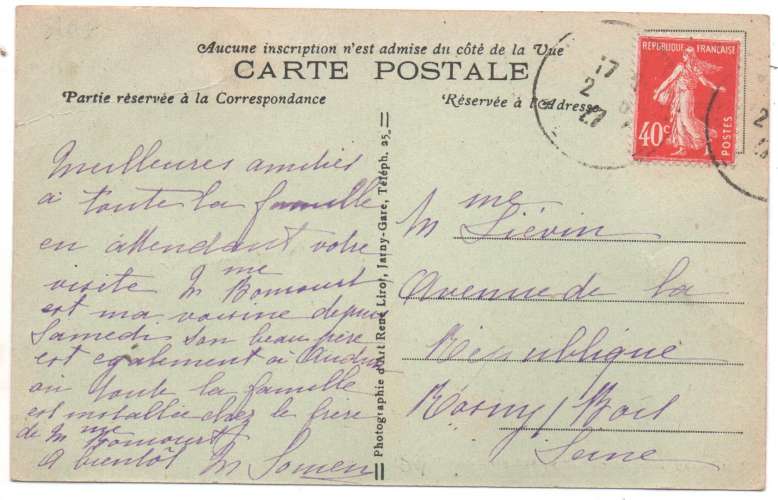 Aucune inscription n'est admise du côté de la Vue
CARTE POSTALE
Partie réservée à la Correspondance
Réservée à l'Adresse
RÉPUBLIQUE FRANÇAISE
40c
POSTES
17
2
27
2
Meilleures amitiés
à toute la famille
en attendant votre
visite Mme
est ma voisine depuis
Samedi son beau frère
est également à Audun
où toute la famille
est installée chez le frère
de Mme
A bientôt M
Photographie d'Art René Lirot, Jarny-Gare, Téléph. 25.
Mme Liévin
Avenue de la
République
Rosny / Bois
Seine